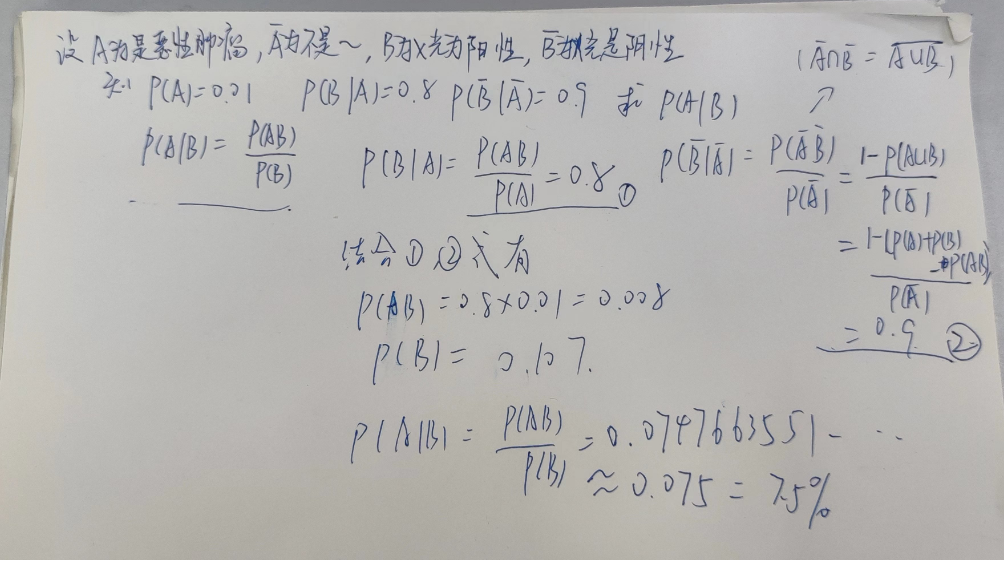 设A为是恶性肿瘤,Ā为不是~,B为X光为阳性,B̄为X光是阴性
知 P(A)=0.01 P(B|A)=0.8 P(B̄|Ā)=0.9 求 P(A|B)
(Ā∩B̄ = \overline{A∪B})
P(A|B) = P(AB)/P(B)
P(B|A) = P(AB)/P(A) = 0.8 ①
P(B̄|Ā) = P(ĀB̄)/P(Ā) = 1-P(A∪B)/P(Ā)
= 1-(P(A)+P(B)-P(AB))/P(Ā)
= 0.9 ②
结合①②式有
P(AB) = 0.8×0.01 = 0.008
P(B) = 0.107.
P(A|B) = P(AB)/P(B) = 0.0747663551-···
≈ 0.075 = 7.5%